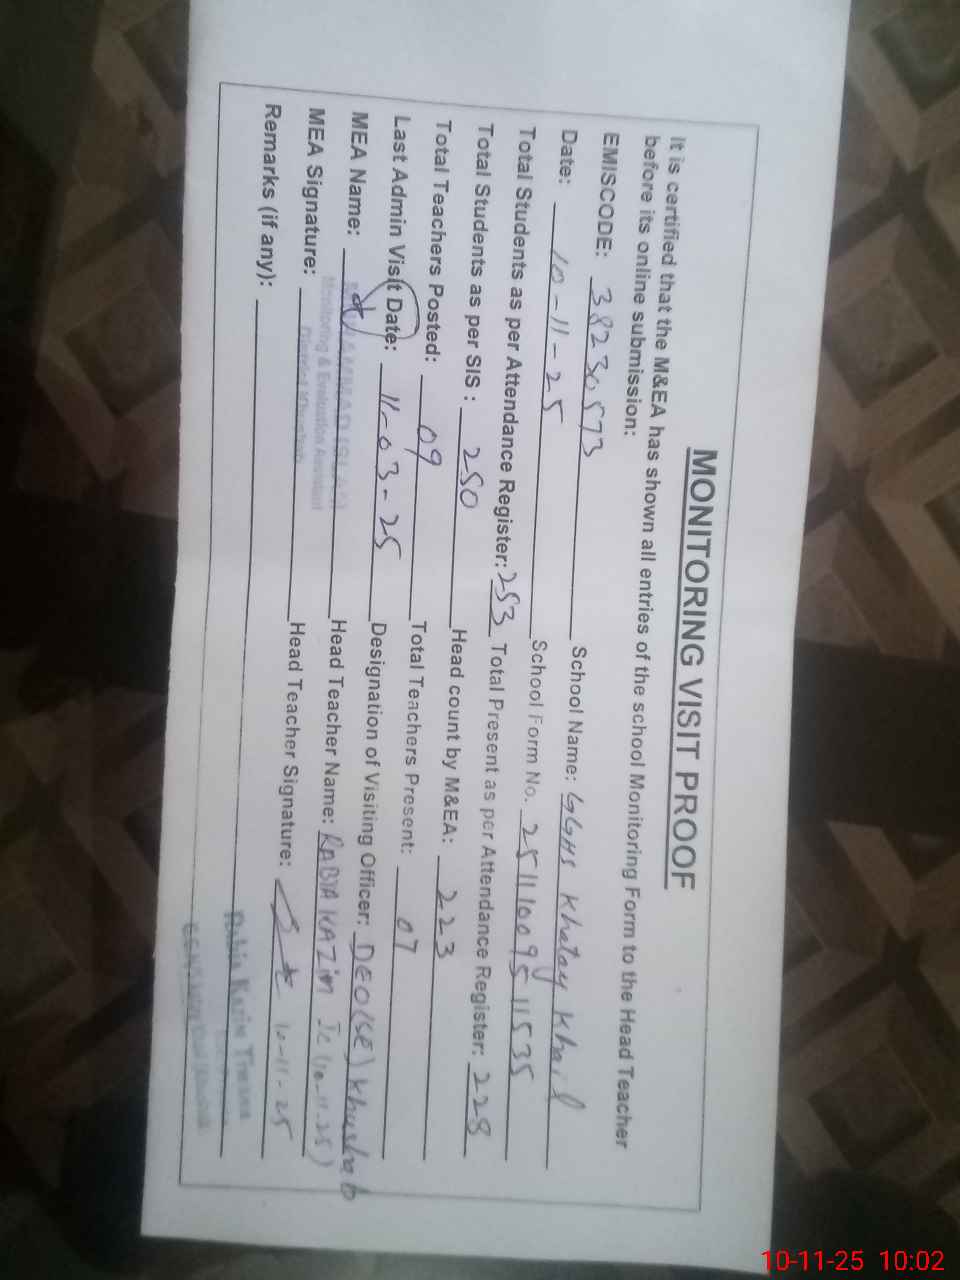 MONITORING VISIT PROOF
It is certified that the M&EA has shown all entries of the school Monitoring Form to the Head Teacher
before its online submission:
EMISCODE: 38230573 School Name: GGHS Khatay Khail
Date: 10-11-25 School Form No. 2511009511535
Total Students as per Attendance Register: 253 Total Present as per Attendance Register: 228
Total Students as per SIS : 250 Head count by M&EA: 223
Total Teachers Posted: 09 Total Teachers Present: 07
Last Admin Visit Date: 11-03-25 Designation of Visiting Officer: DEO(SE) Khushab
MEA Name: Head Teacher Name: RABIA KAZIM Ic (10-11-25)
Monitoring & Evaluation Assistant
District Khushab
MEA Signature: Head Teacher Signature: 10-11-25
Remarks (if any):
Rabia Kazim
10-11-25 10:02